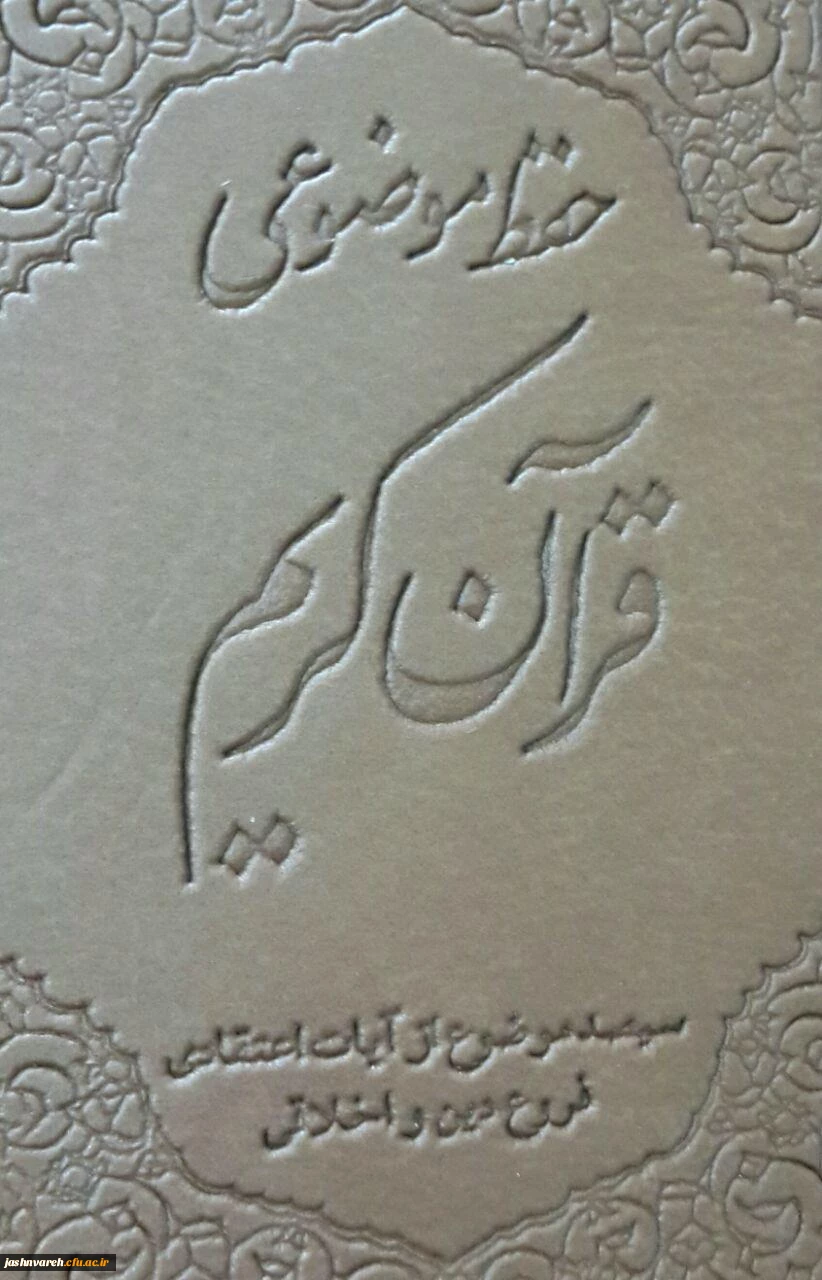 حفظ موضوعی
قرآن کریم
سیصد موضوع از آیات اعتقادی
فروع دین و اخلاقی
jashnvareh.cfu.ac.ir